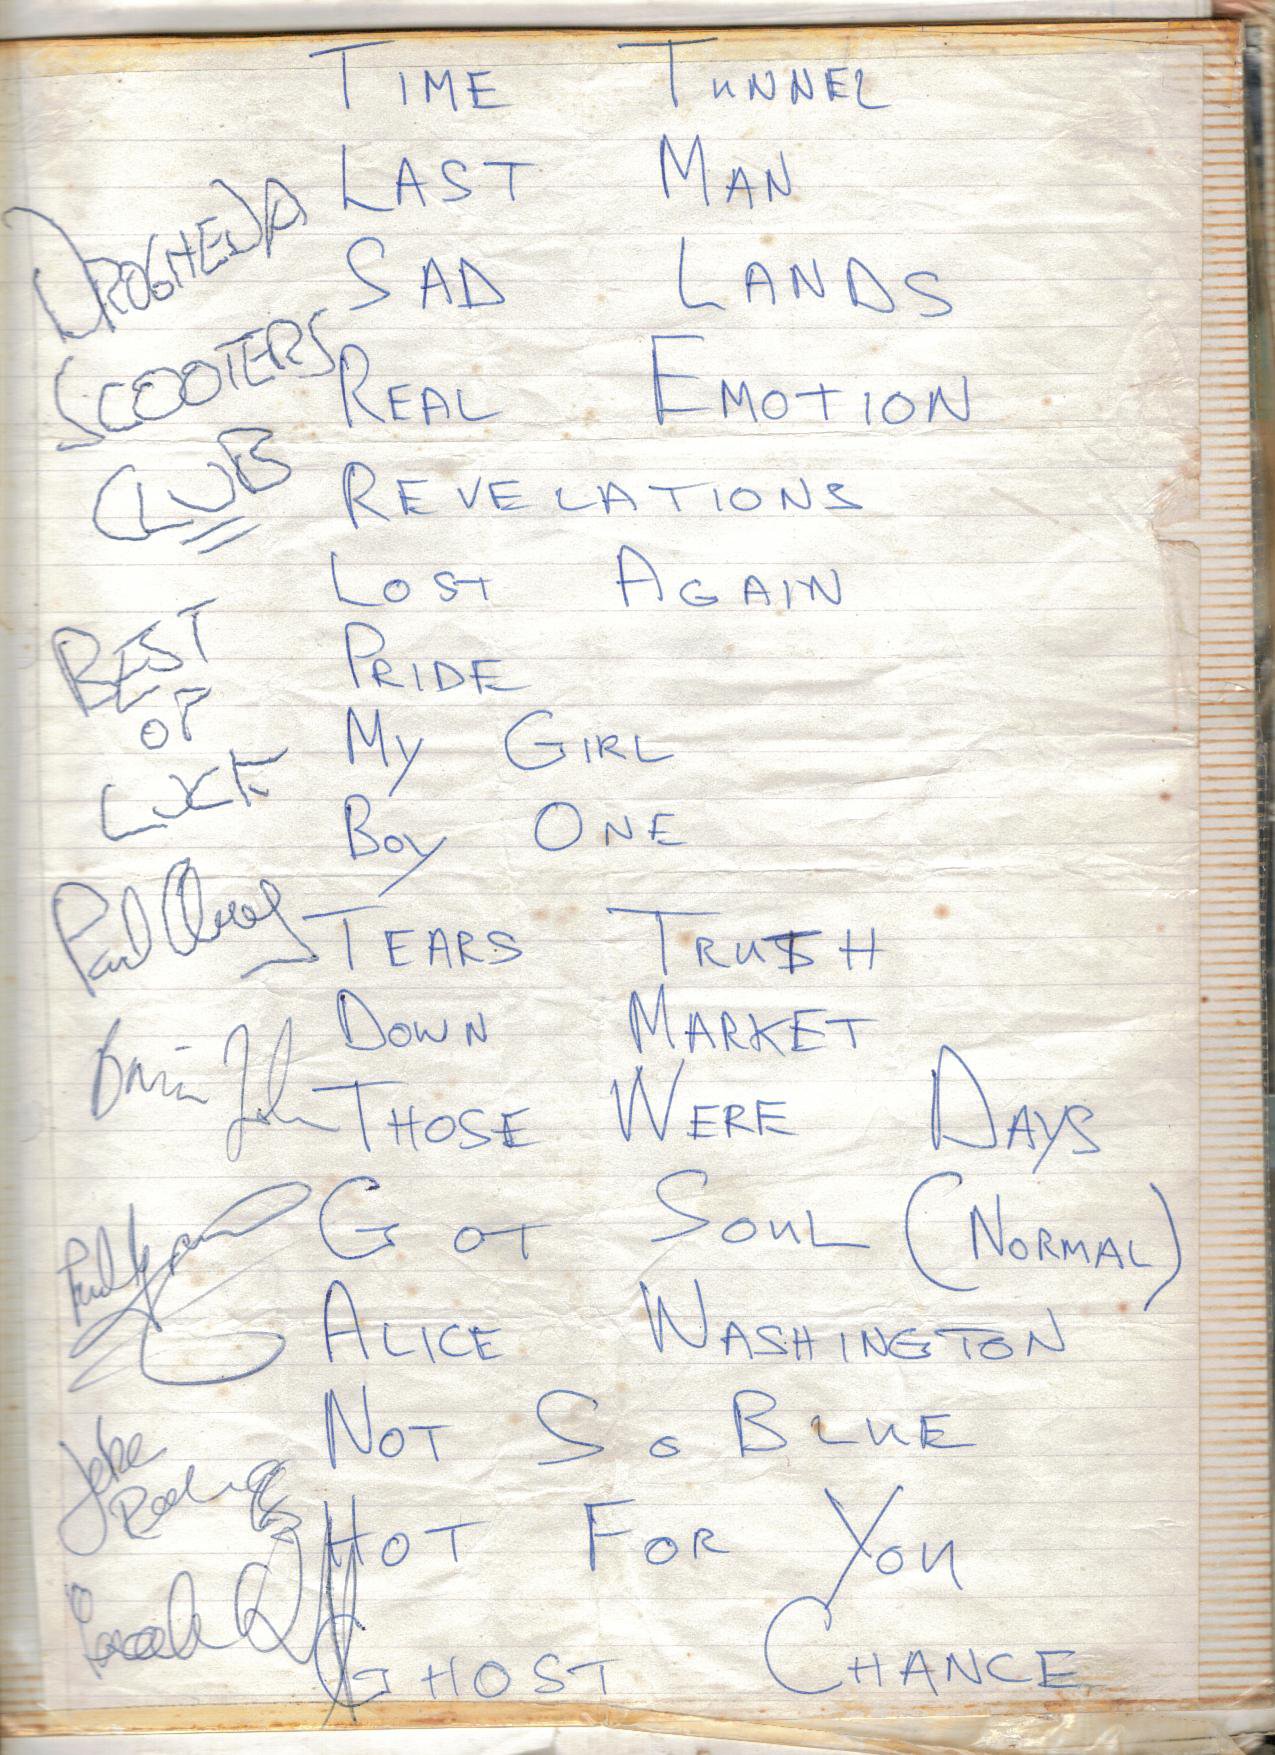 TIME TUNNEL
LAST MAN
SAD LANDS
REAL EMOTION
REVELATIONS
LOST AGAIN
PRIDE
MY GIRL
BOY ONE
TEARS TRUSH
DOWN MARKET
THOSE WERE DAYS
GOT SOUL (NORMAL)
ALICE WASHINGTON
NOT SO BLUE
HOT FOR YOU
GHOST CHANCE
DROGHEDA
SCOOTERS
CLUB
BEST
OF
LUCK
Paul
Paul
Jake